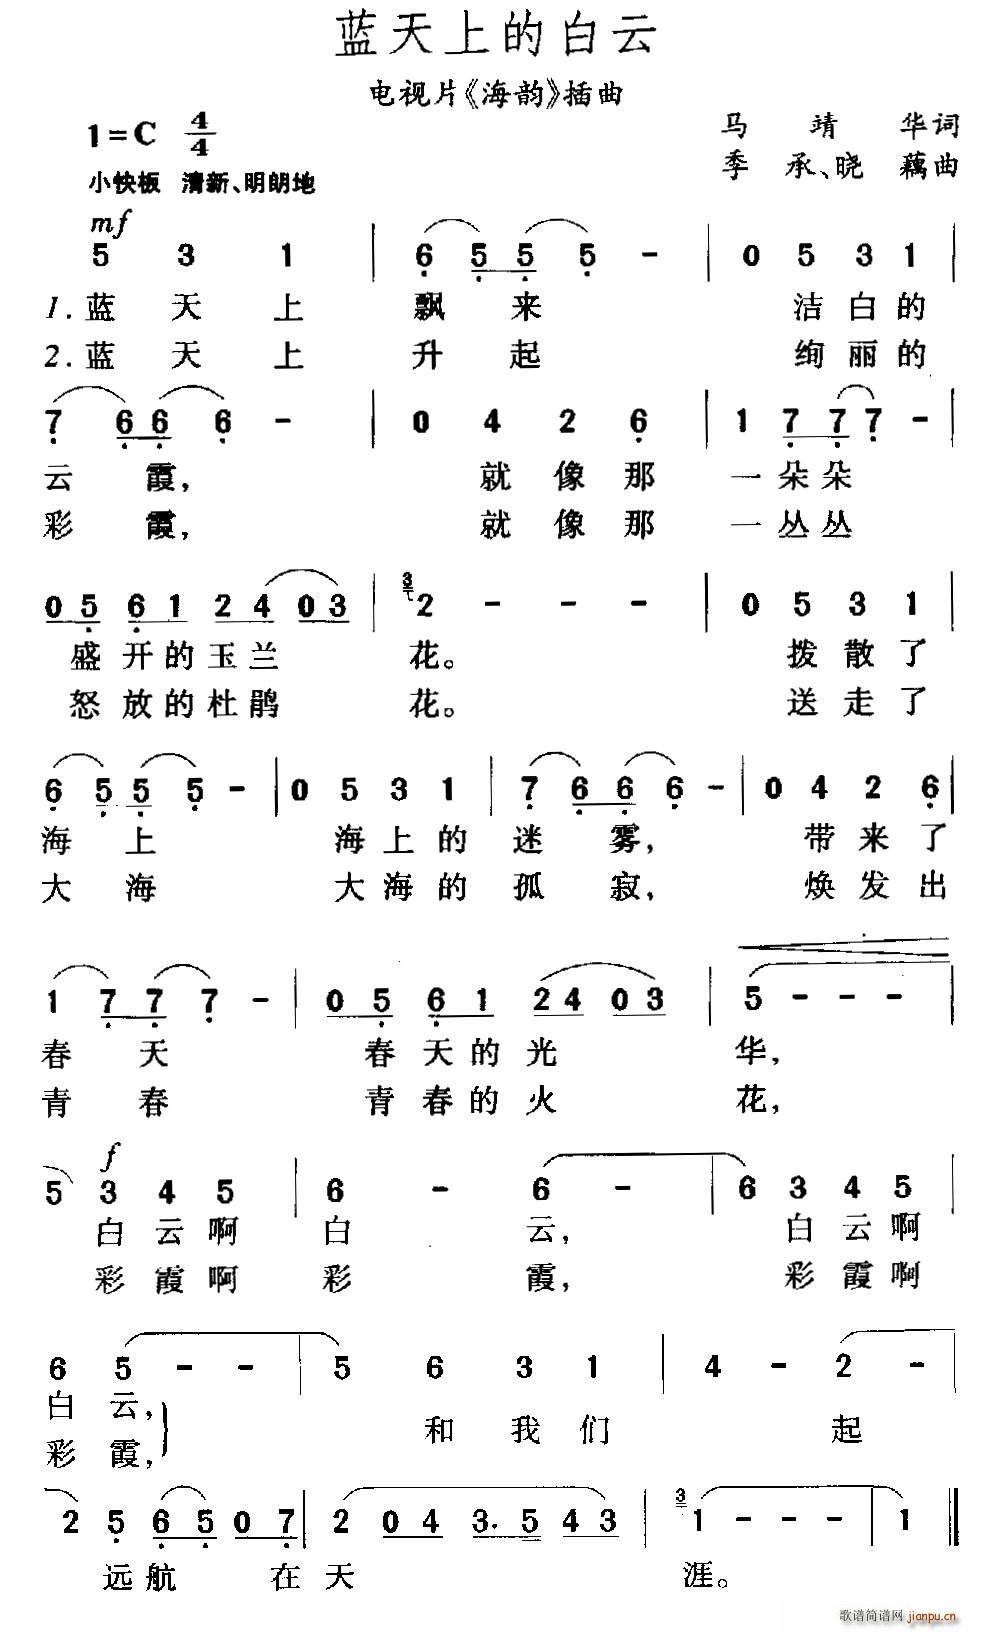 蓝天上的白云
电视片《海韵》插曲
1=C 4/4
马靖华词
小快板 清新、明朗地
季承、晓藕曲
mf
5 3 1 | 6 5 5 5 - | 0 5 3 1 |
1.蓝天上飘来 洁白的
2.蓝天上升起 绚丽的
7 6 6 6 - | 0 4 2 6 | 1 7 7 7 - |
云霞, 就像那一朵朵
彩霞, 就像那一丛丛
0 5 6 1 2 4 0 3 | 3 2 - - - | 0 5 3 1 |
盛开的玉兰花。 拨散了
怒放的杜鹃花。 送走了
6 5 5 5 - | 0 5 3 1 | 7 6 6 6 - | 0 4 2 6 |
海上 海上的迷雾, 带来了
大海 大海的孤寂, 焕发出
1 7 7 7 - | 0 5 6 1 2 4 0 3 | 5 - - - |
春天 春天的光华,
青春 青春的火花,
f
5 3 4 5 | 6 - 6 - | 6 3 4 5 |
白云啊白云, 白云啊
彩霞啊彩霞, 彩霞啊
6 5 - - | 5 6 3 1 | 4 - 2 - |
白云,
和我们起
彩霞,
2 5 6 5 0 7 | 2 0 4 3. 5 4 3 | 3 1 - - - | 1 ‖
远航 在天涯。
歌谱简谱网 jianpu.cn